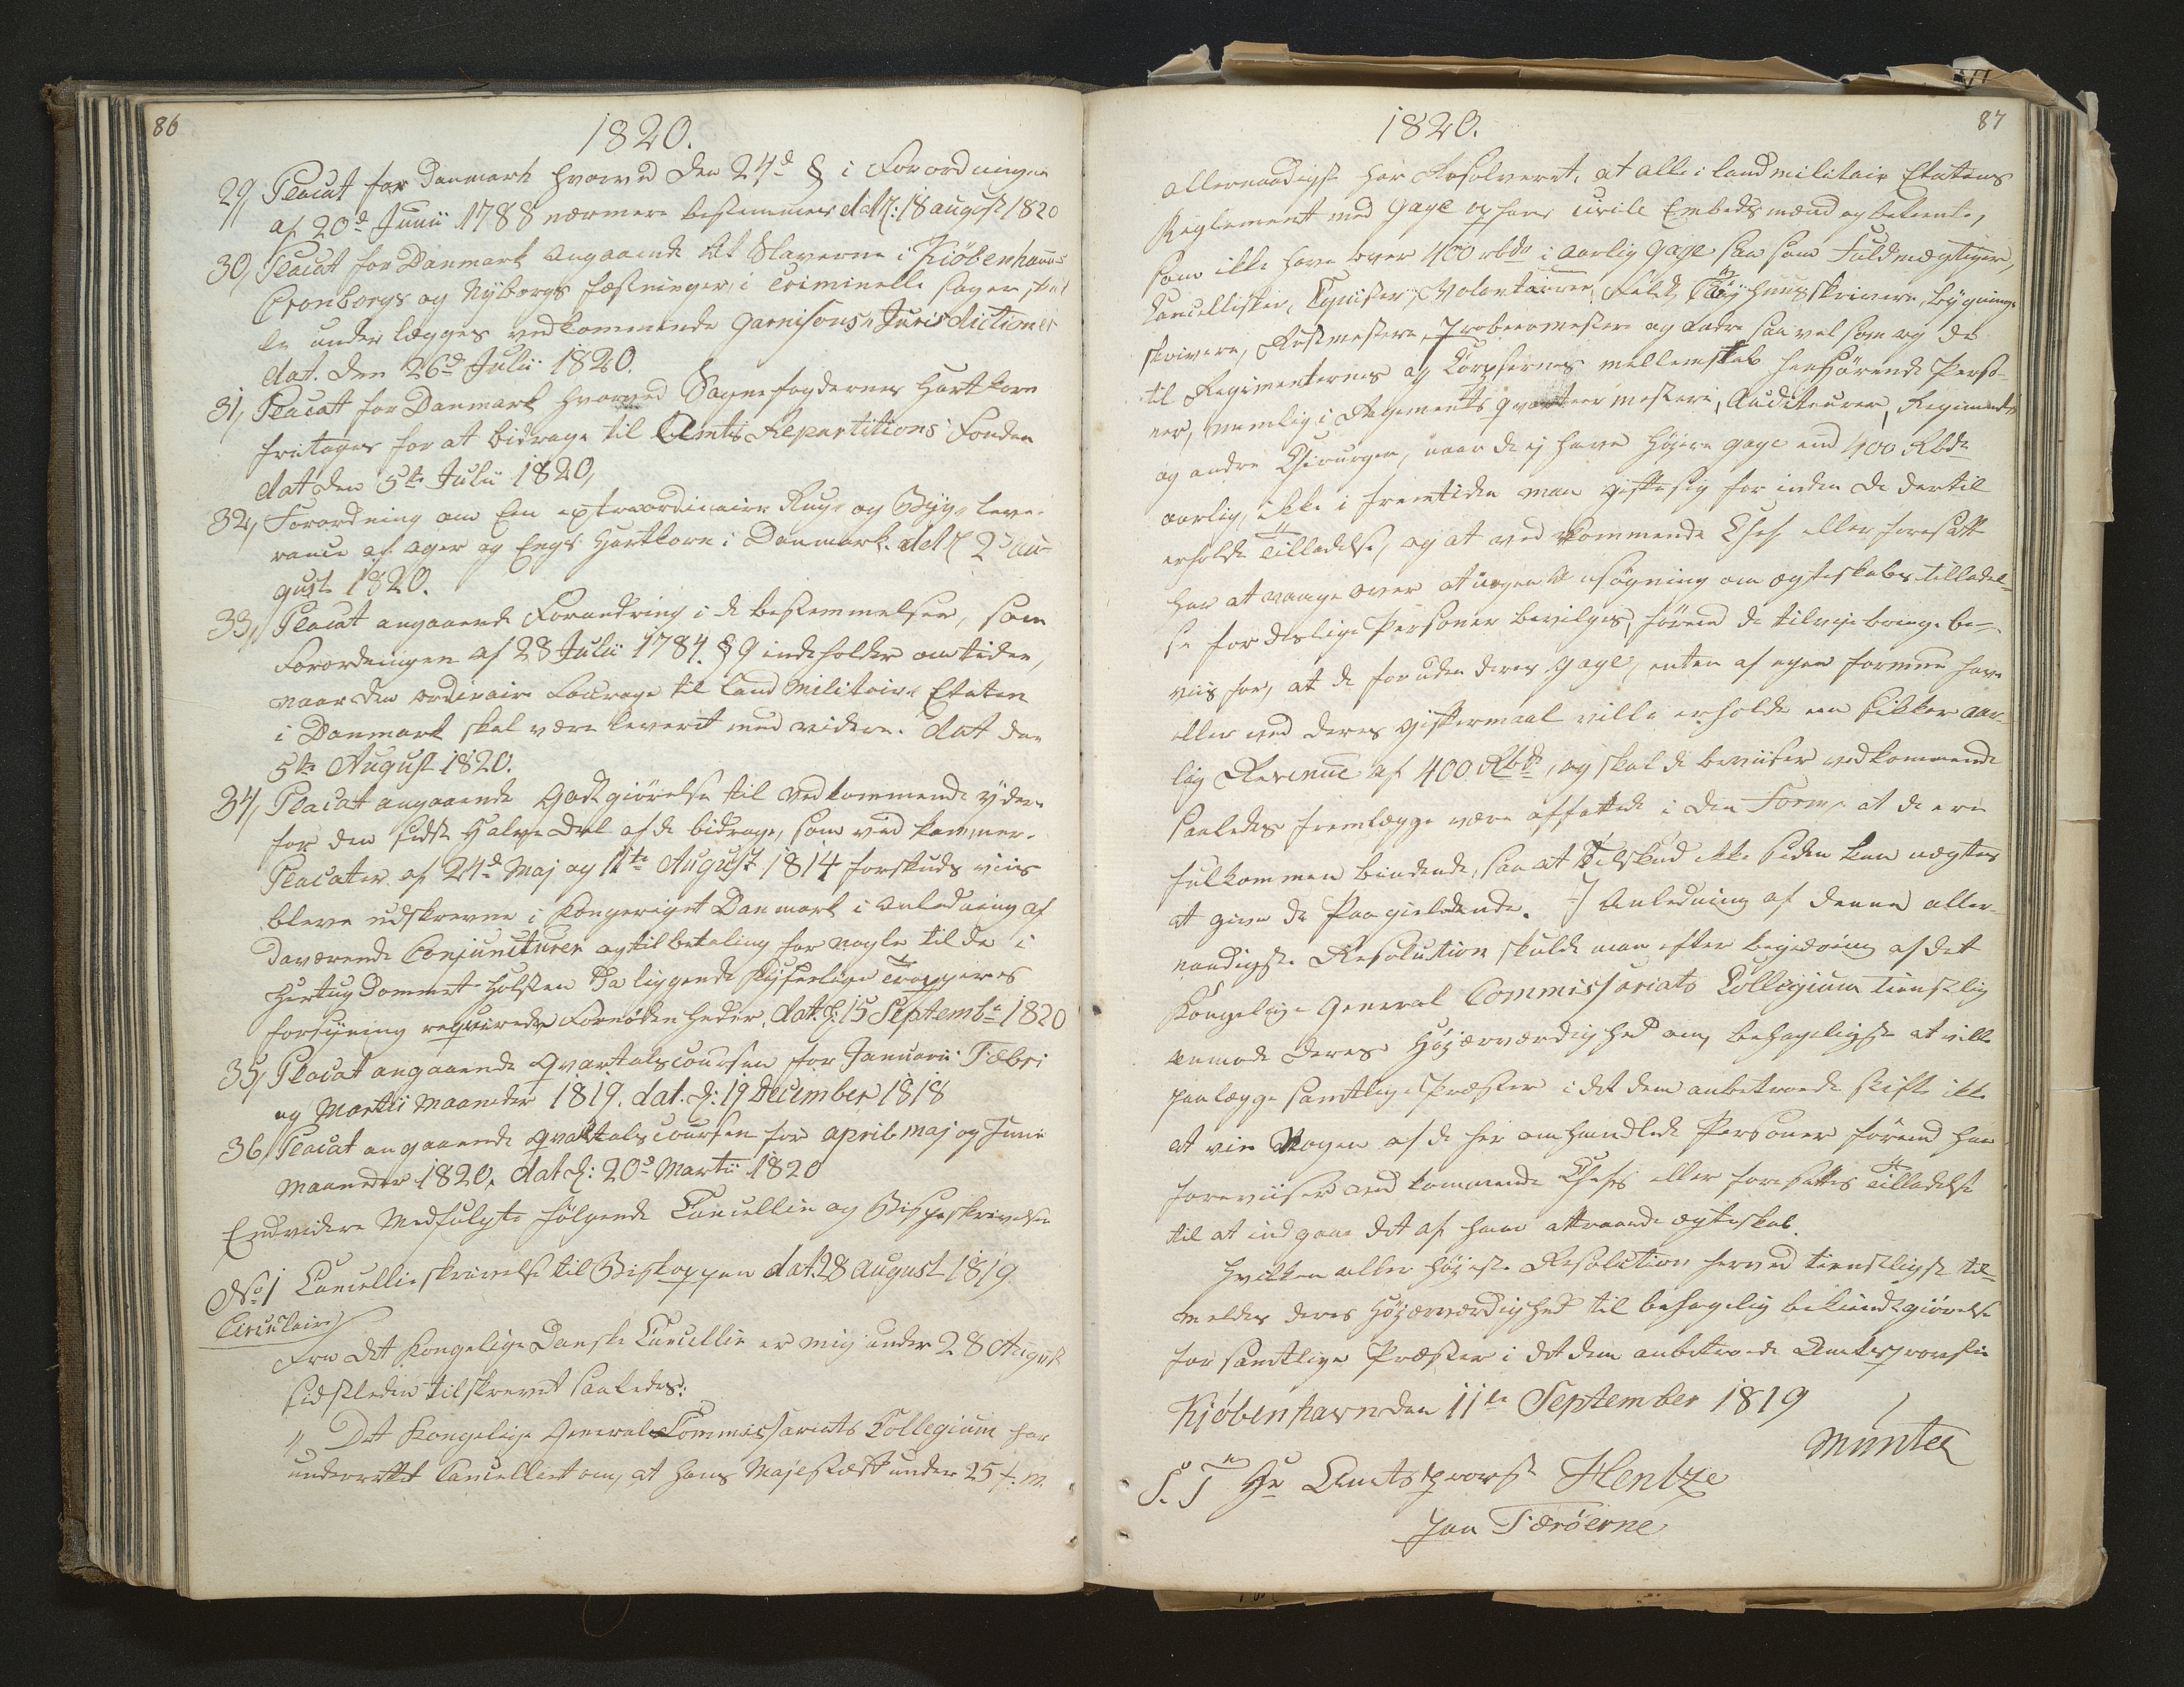 86
1820.
29, Placat for Danmark hvorved den 24d § i Forordningen
af 20d Junii 1788 nærmere bestemmes dat: 18 august 1820
30, Placat for Danmark angaaende at Slaverne i Kiøbenhavns
Cronborgs og Nyborgs fæstninger, i Criminelle sager skul
le under lægges vedkommende Garnisons-Jurisdictioner
dat. den 26d Julii 1820.
31, Placat for Danmark hvorved Sognefogdernes Hartkorn
fritages for at bidrage til Amts Repartitions Fonden
dat den 5te Julii 1820,
32, Forordning om Een extraordinair Rug- og Byg- leve-
rance af ager og Engs Hartkorn i Danmark. dat 2d au-
gust 1820.
33, Placat angaaende Forandring i de bestemmelser, som
Forordningen af 28 Julii 1784. § 9 indeholder om tiden,
naar den ordinaire Fourage til Land Militaire Etaten
i Danmark skal være leveret med videre. dat den
5te August 1820.
34, Placat angaaende Godtgiørelse til vedkommende ydere
for den sidste Halve Deel af de bidrage, som ved kammer-
Placater af 24d Maj og 11te August 1814 forskuds viis
bleve udskrevne i Kongeriget Danmark i anledning af
daværende Conjuncturer og til betaling for nogle til de i
Hertugdømmet Holsten da liggende Kejserlige Troppers
forsyning requirerede Fornødenheder. dat. d: 15 Septembr 1820
35, Placat angaaende Qvartalscoursen for Januarii Febri
og Martii Maaneder 1819. dat. d: 19 December 1818
36, Placat angaaende Qvartalscoursen for april maj og Junii
Maaneder 1820, dat d: 20d Martii 1820
Endvidere Medfulgte følgende Cancellie og Bispeskrivelser
No 1 Cancellieskrivelse til Biskoppen dat. 28 August 1819.
Circulaire
Fra det Kongelige Danske Cancellie er mig under 28 August
sidstleden tilskrevet saaledes:
"Det Kongelige General Commissariats Collegium har
underrettet Cancelliet om, at hans Majestæt under 25 f. m.
1820.
87
allernaadigst har Resolveret, at alle i landmilitair Etatens
Reglement med Gage opførte civile Embedsmænd og betiente,
som ikke have over 400 rbdr i aarlig Gage saa som Fuldmægtiger,
Cancellister, Copiister, Volontairer, Felt Tøyhuusskrivere, bygnings
skrivere, Rustmestere, Proberemestere og andre saavelsom og de
til Regimenternes og Corpsernes mellemstab henhørende Perso-
ner, nemlig: Regiments Qvarteermestere, Auditeurer, Regiments
og andre Chirurger, naar de ej have højere Gage end 400 Rbdr
aarlig, ikke i fremtiden maa gifte sig før inden de dertil
erholde Tilladelse, og at vedkommende Chef eller foresatte
har at vaage over at ingen Ansøgning om ægteskabs tilladel-
se for deslige Personer bevilges, førend de tilvejebringe be-
viis for, at de foruden deres Gage, enten af egen formue have
eller ved deres giftermaal ville erholde en sikker aar-
lig Revenue af 400 Rbdr, og skal de beviiser vedkommende
saaledes fremlægge være affattede i den Form, at de ere
fuldkommen bindende, saa at Tilskud ikke siden kan nægtes
at give de Paagieldende. I Anledning af denne aller-
naadigste Resolution skulde man efter begiering af det
Kongelige General Commissariats Collegium tienstlig
anmode Deres Højærværdighed om, behageligst at ville
paalægge samtlige Præster i det dem anbetroede stift ikke
at vie Nogen af de her omhandlede Personer førend han
foreviiser vedkommende Chefs eller foresattes Tilladelse
til at indgaae det af ham attraaede ægteskab.
Hvilken allerhøjeste Resolution herved tienstligst til-
meldes Deres Højærværdighed til behagelig bekiendtgiørelse
for samtlige Præster i det dem anbetroede Amtsprovstie
Kjøbenhavn den 11te September 1819
Münter
S. T. Hr Amtsprovst Hentze
paa Færøerne